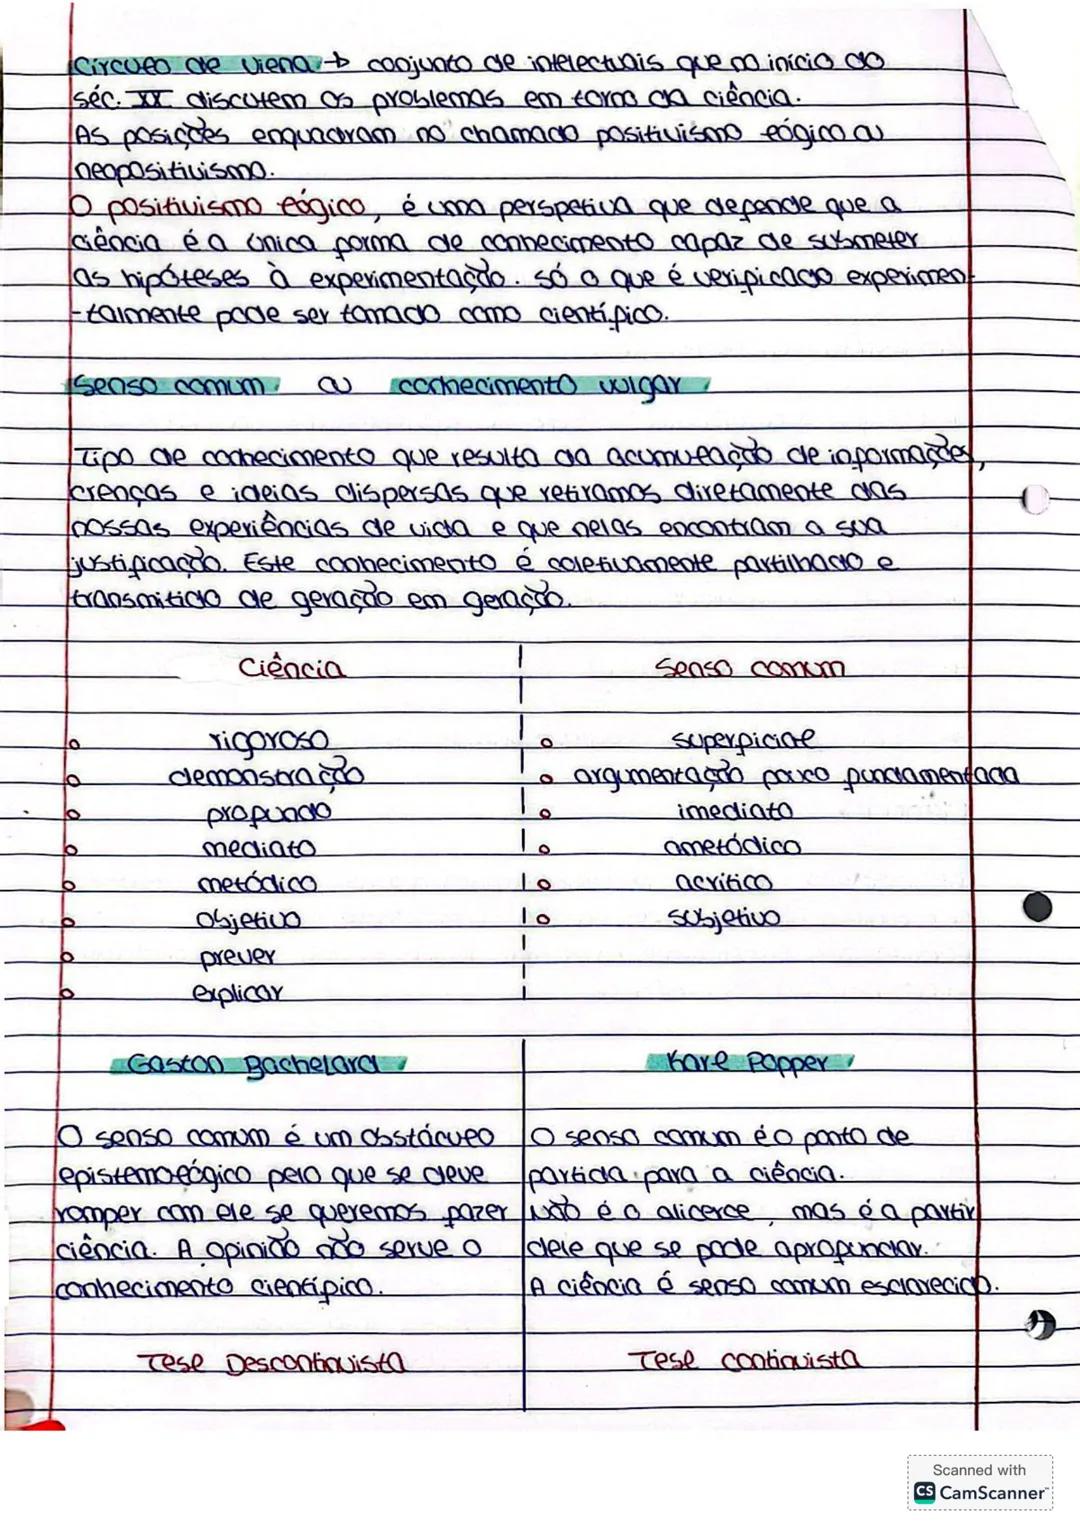 Círculo de Viena → conjunto de intelectuais que no início do
séc. XX discutem os problemas em torno da ciência.
As posições enquadram no chamado positivismo lógico ou
neopositivismo.
O positivismo lógico, é uma perspetiva que defende que a
ciência é a única forma de conhecimento capaz de submeter
as hipóteses à experimentação. Só o que é verificado experimen-
-talmente pode ser tomado como científico.
Senso comum ou conhecimento vulgar
Tipo de conhecimento que resulta da acumulação de informações,
crenças e ideias dispersas que retiramos diretamente das
nossas experiências de vida e que nelas encontram a sua
justificação. Este conhecimento é coletivamente partilhado e
transmitido de geração em geração.
Ciência Senso comum
rigoroso superficial
demonstração argumentação pouco fundamentada
profundo imediato
mediato ametódico
metódico acrítico
objetivo subjetivo
prever
explicar
Gaston Bachelard
O senso comum é um obstáculo
epistemológico pelo que se deve
romper com ele se queremos fazer
ciência. A opinião não serve o
conhecimento científico.
Tese Descontinuista
Karl Popper
O senso comum é o ponto de
partida para a ciência.
Não é o alicerce, mas é a partir
dele que se pode aprofundar.
A ciência é senso comum esclarecido.
Tese continuista
Scanned with
CS CamScanner